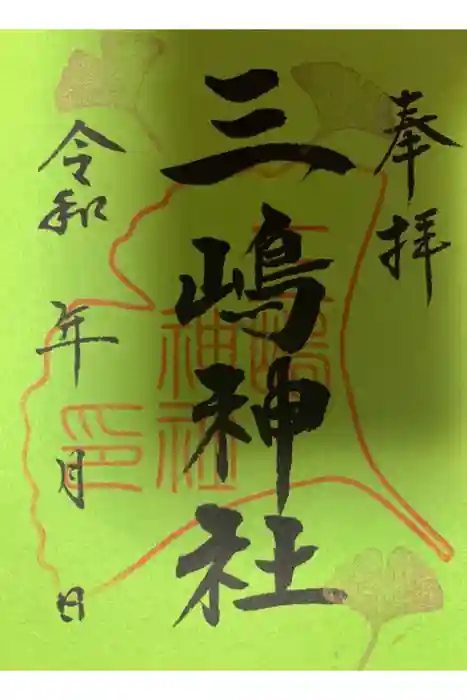 奉拝
三嶋神社
令和 年 月 日
三嶋神社印